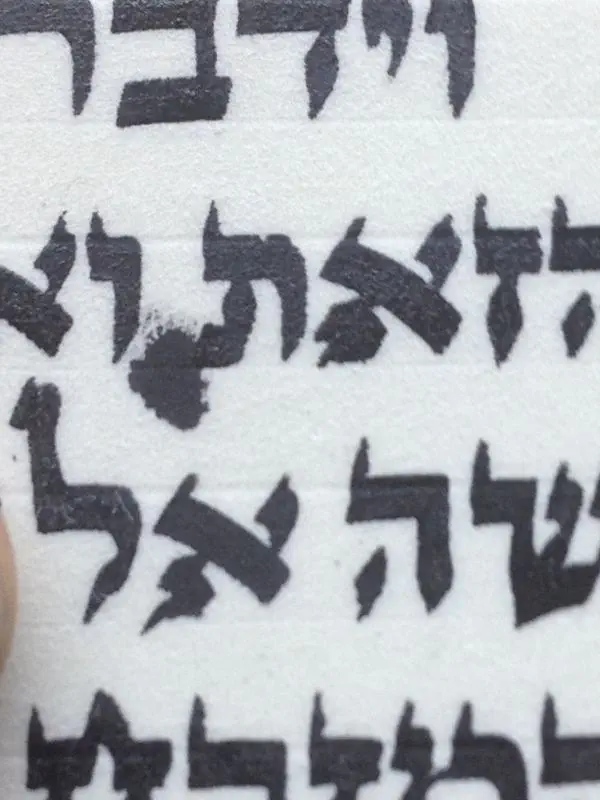 וידבר
הזאת וא
שה אל